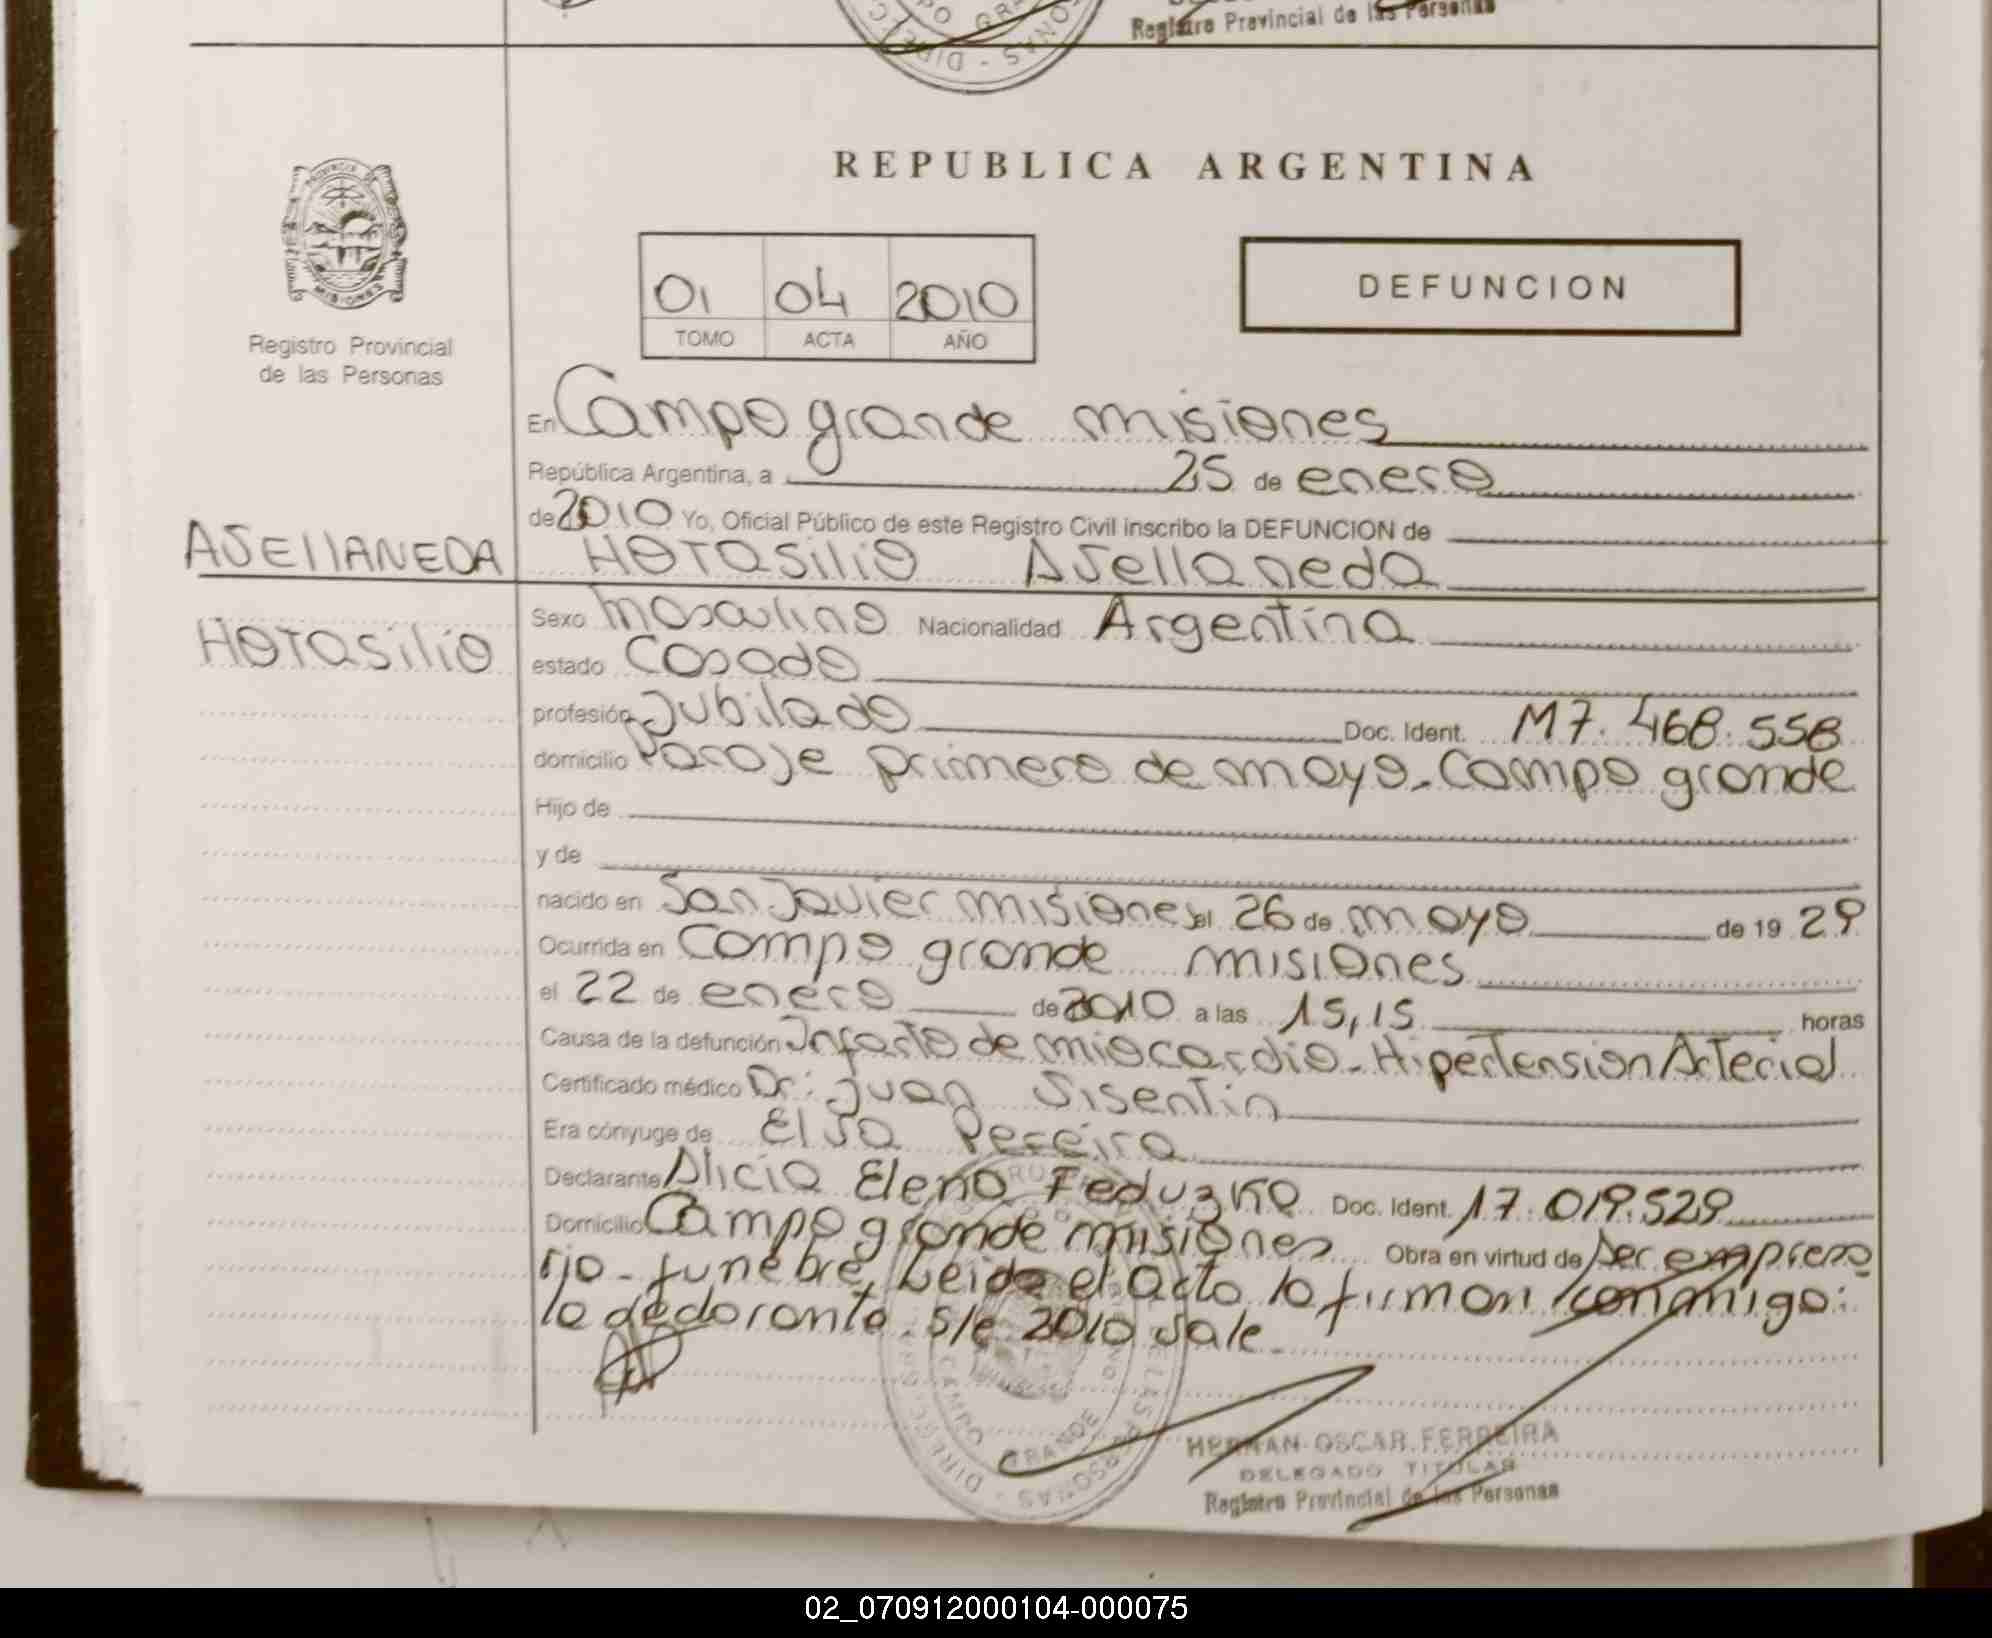 Registro Provincial de las Personas
REPUBLICA ARGENTINA
01 04 2010
TOMO ACTA AÑO
DEFUNCION
PROVINCIA DE MISIONES
Registro Provincial
de las Personas
En Campo grande misiones
República Argentina, a 25 de enero
de 2010 Yo, Oficial Público de este Registro Civil inscribo la DEFUNCION de
AVEllANEDA
HOTasilio Avellaneda
HOTasilio
Sexo masculino Nacionalidad Argentina
estado Casado
profesión Jubilado Doc. Ident. M7.468.558
domicilio Paraje primero de mayo-Campo grande
Hijo de
y de
nacido en San Javier misiones el 26 de mayo de 19 29
Ocurrida en Campo grande misiones
el 22 de enero de 2010 a las 15,15 horas
Causa de la defunción Infarto de miocardio-Hipertension Arterial
Certificado médico Dr: Juan Visentin
Era cónyuge de Elva Pereira
Declarante Alicia Elena Feduzko Doc. Ident. 17.019.529
Domicilio Campo grande misiones Obra en virtud de ser empresa
rio-funebre, Leida el acta la firman conmigo:
la declarante. S/e 2010 vale
HERNAN OSCAR FERREIRA
DELEGADO TITULAR
Registro Provincial de las Personas
02_070912000104-000075